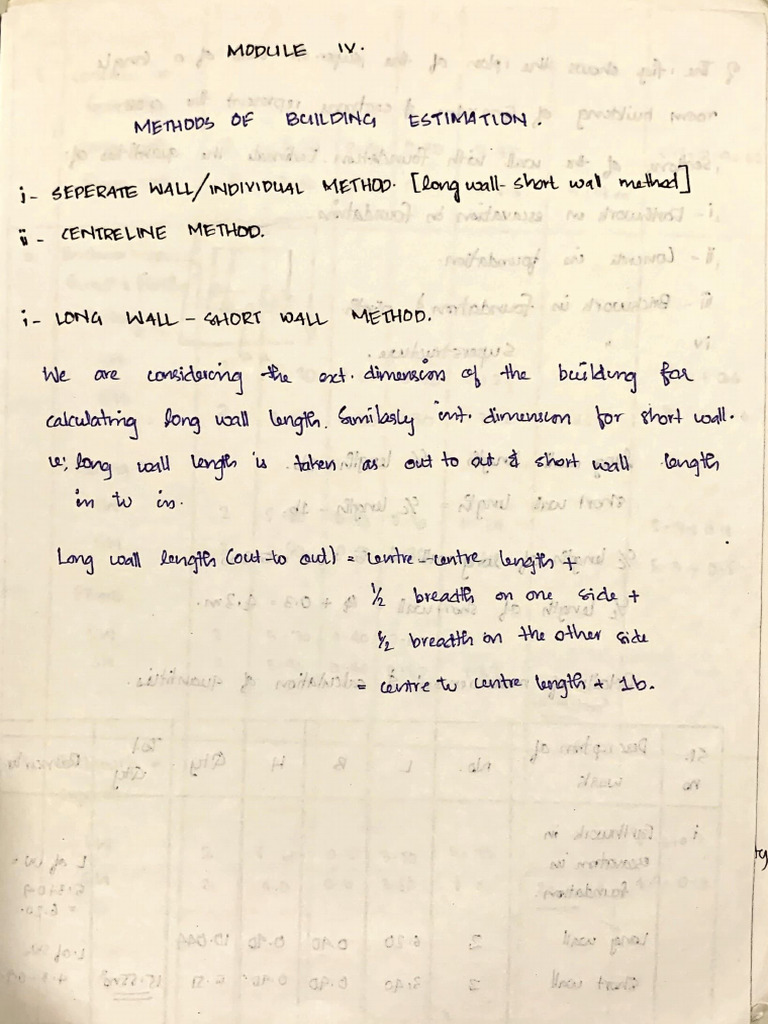 MODULE IV.
METHODS OF BUILDING ESTIMATION.
i- SEPERATE WALL/INDIVIDUAL METHOD. [long wall- short wall method]
ii - CENTRELINE METHOD.
i- LONG WALL - SHORT WALL METHOD.
We are considering the ext. dimension of the building for
calculating long wall length. Similarly int. dimension for short wall.
ie; long wall length is taken as out to out & short wall length
in to in.
Long wall length (out-to out) = centre-centre length +
1/2 breadth on one side +
1/2 breadth on the other side
= centre to centre length + 1b.